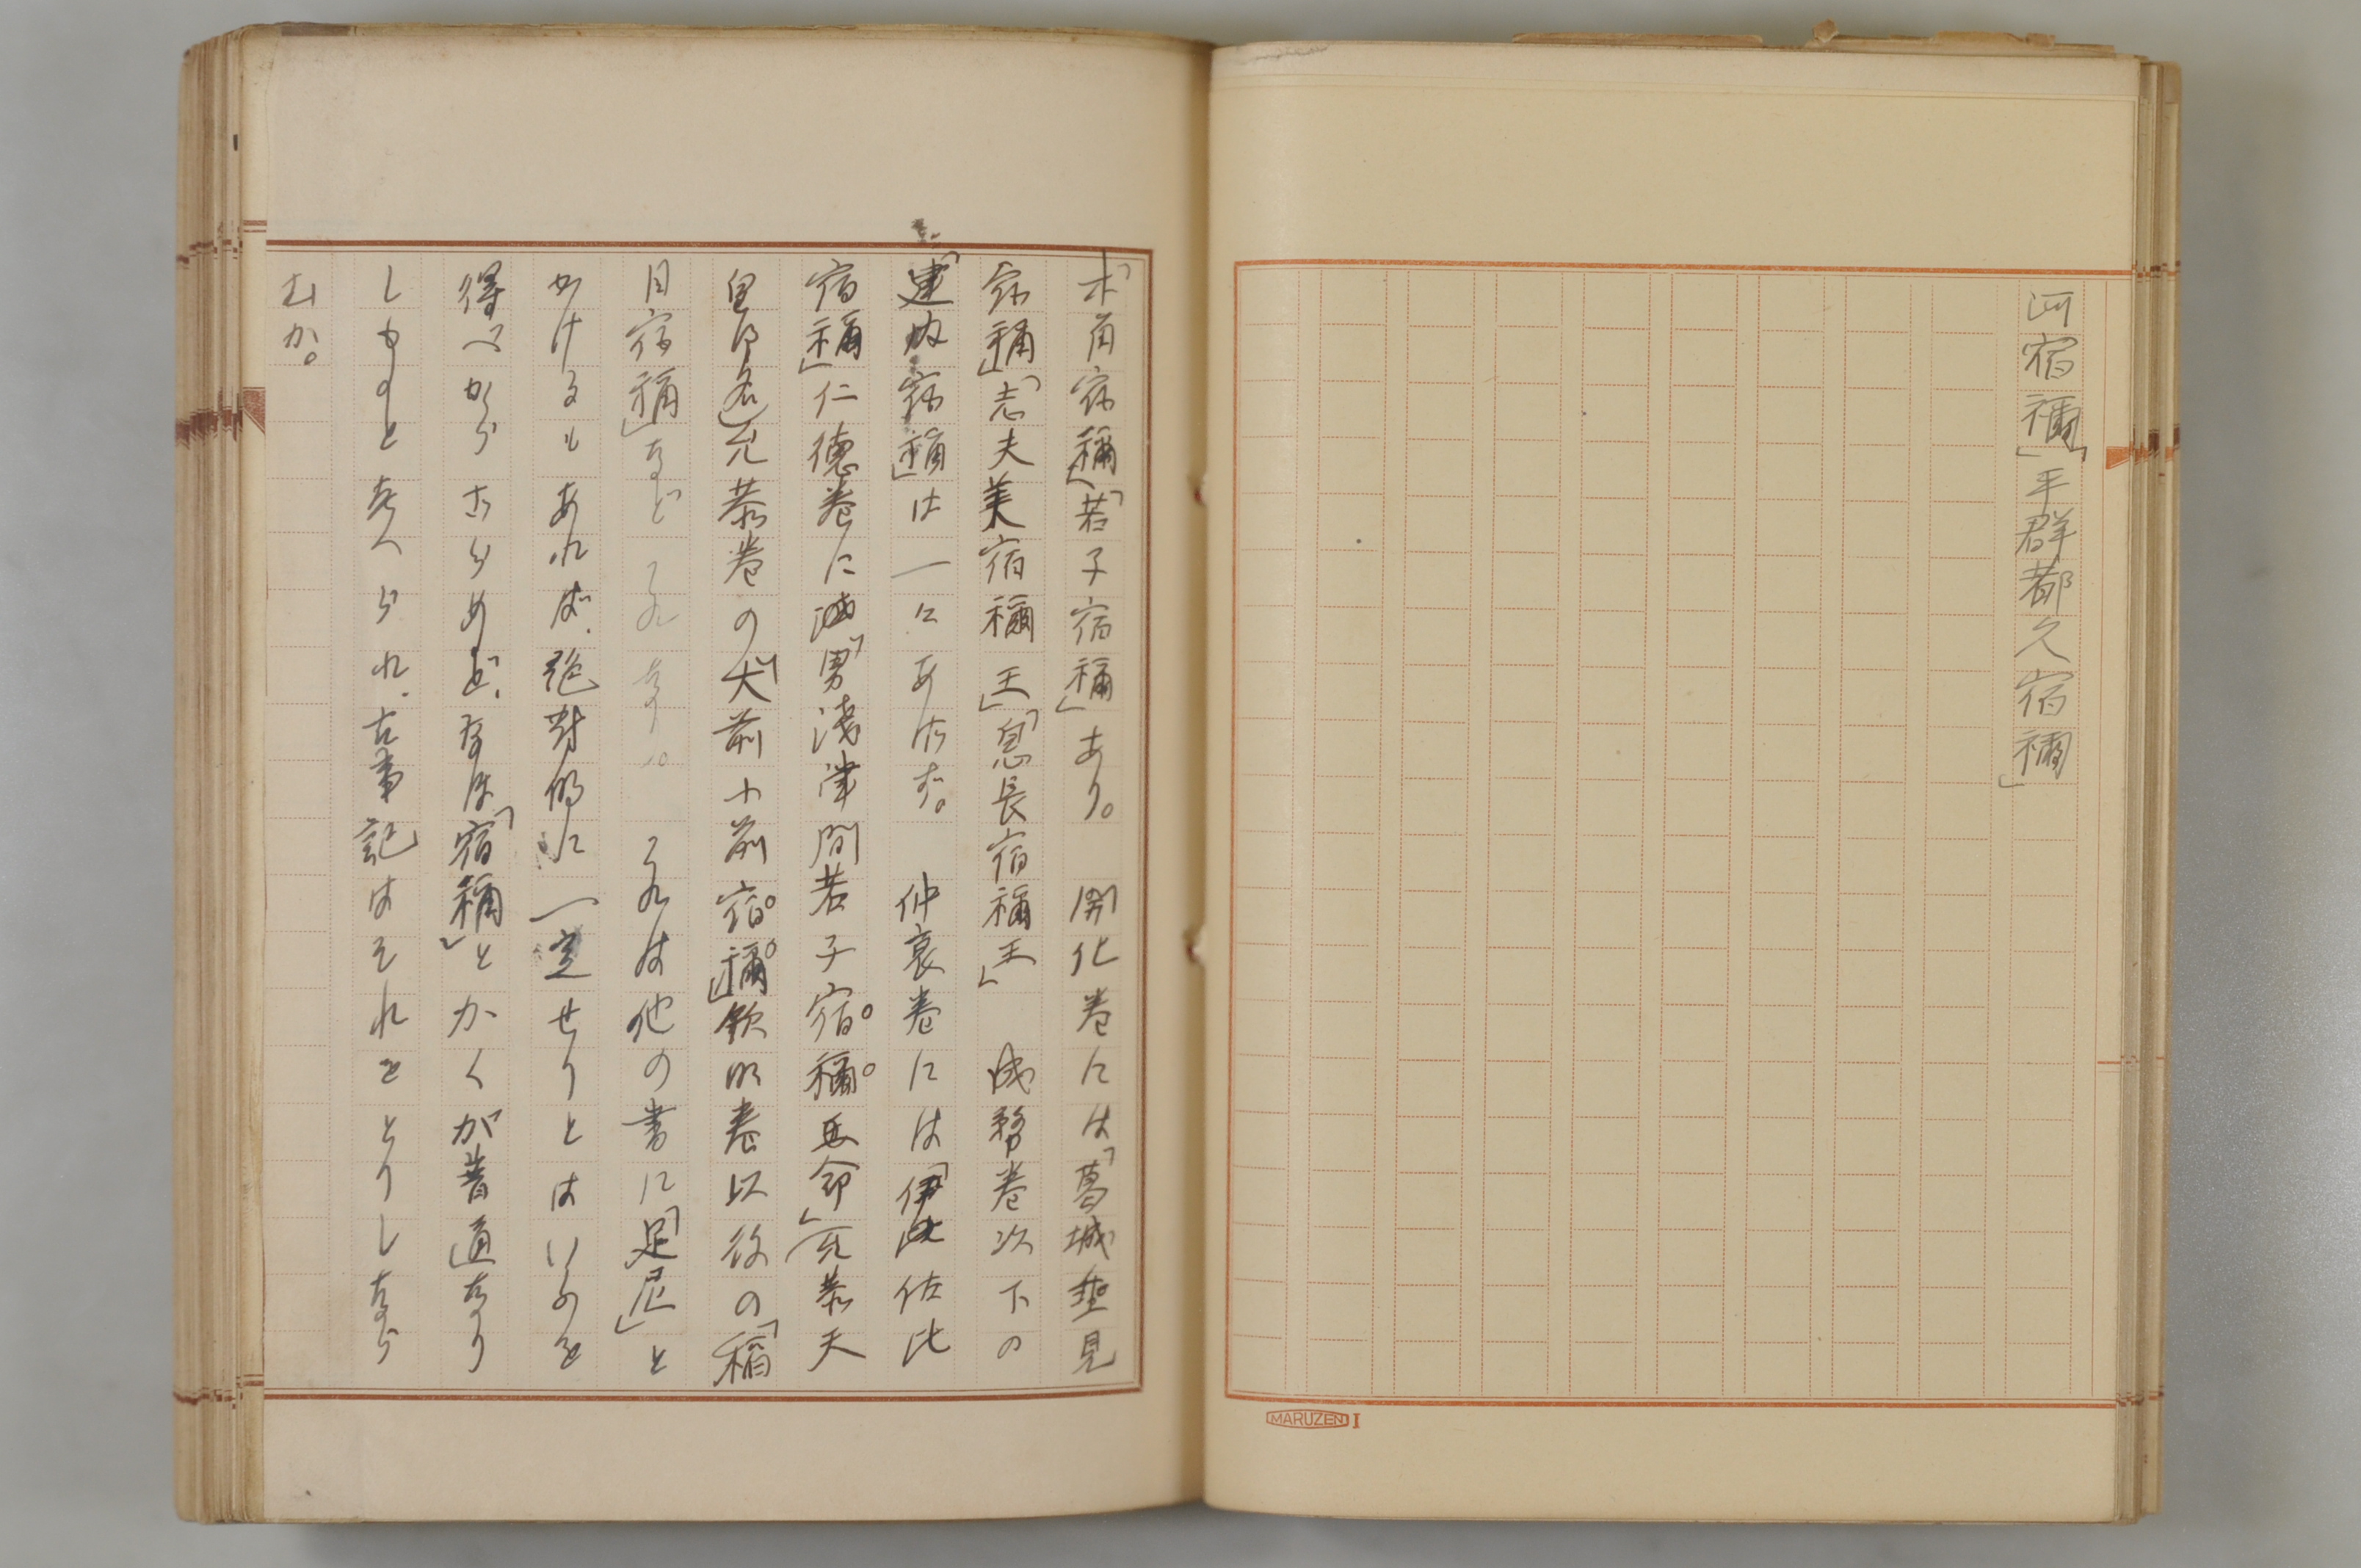 河宿禰」「平群都久宿禰」
木角宿禰」「若子宿禰」あり。 開化卷には「葛城垂見
宿禰」「志夫美宿禰王」「息長宿禰王」 成務卷次下の
「建内宿禰」は一にあらず。 仲哀卷には「伊佐比
宿禰」仁德卷に「男淺津間若子宿禰王命」(允恭天
皇御名)允恭卷の「大前小前宿禰」欽明卷以後の「稻
目宿禰」など みな 他の書に「足尼」と
かけるもあれば、絶對的に一定せりとはいふを
得べからざらめど、なほ「宿禰」とかくが普通なり
しものと考へられ、古事記はそれをとりしなら
むか。
MARUZEN I